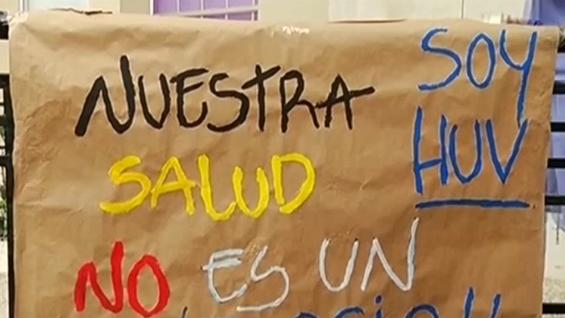 NUESTRA
SALUD
NO ES UN
SOY
HUV